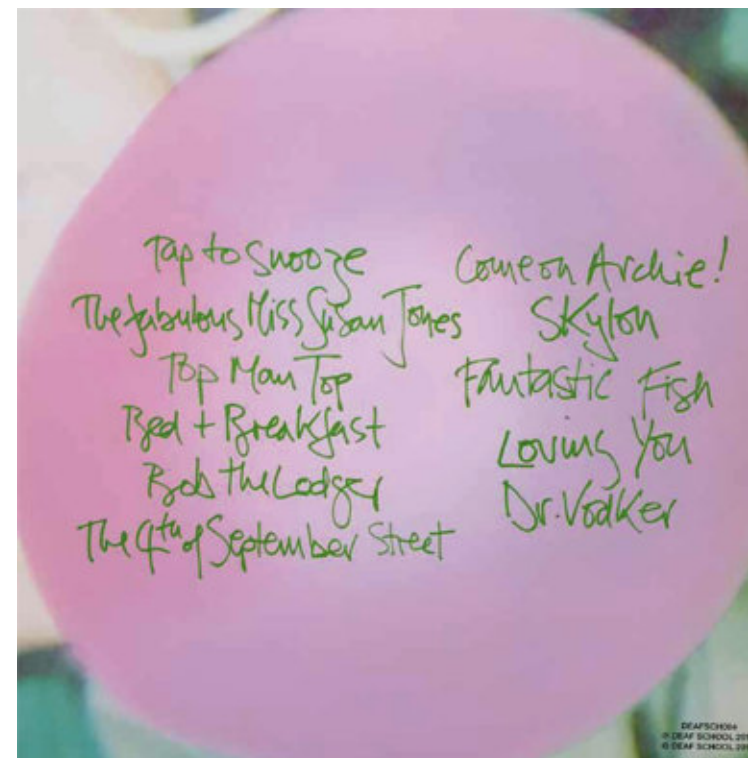 Tap to Snooze
The fabulous Miss Susan Jones
Top Man Top
Bed + Breakfast
Bob the Lodger
The 4th of September Street
Come on Archie!
Skylon
Fantastic Fish
Loving You
Dr. Vodker
DEAFSCH004
℗ DEAF SCHOOL
© DEAF SCHOOL